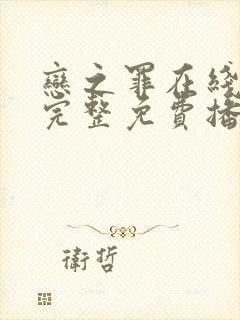 戀之罪在綫
完整免費播
衛哲